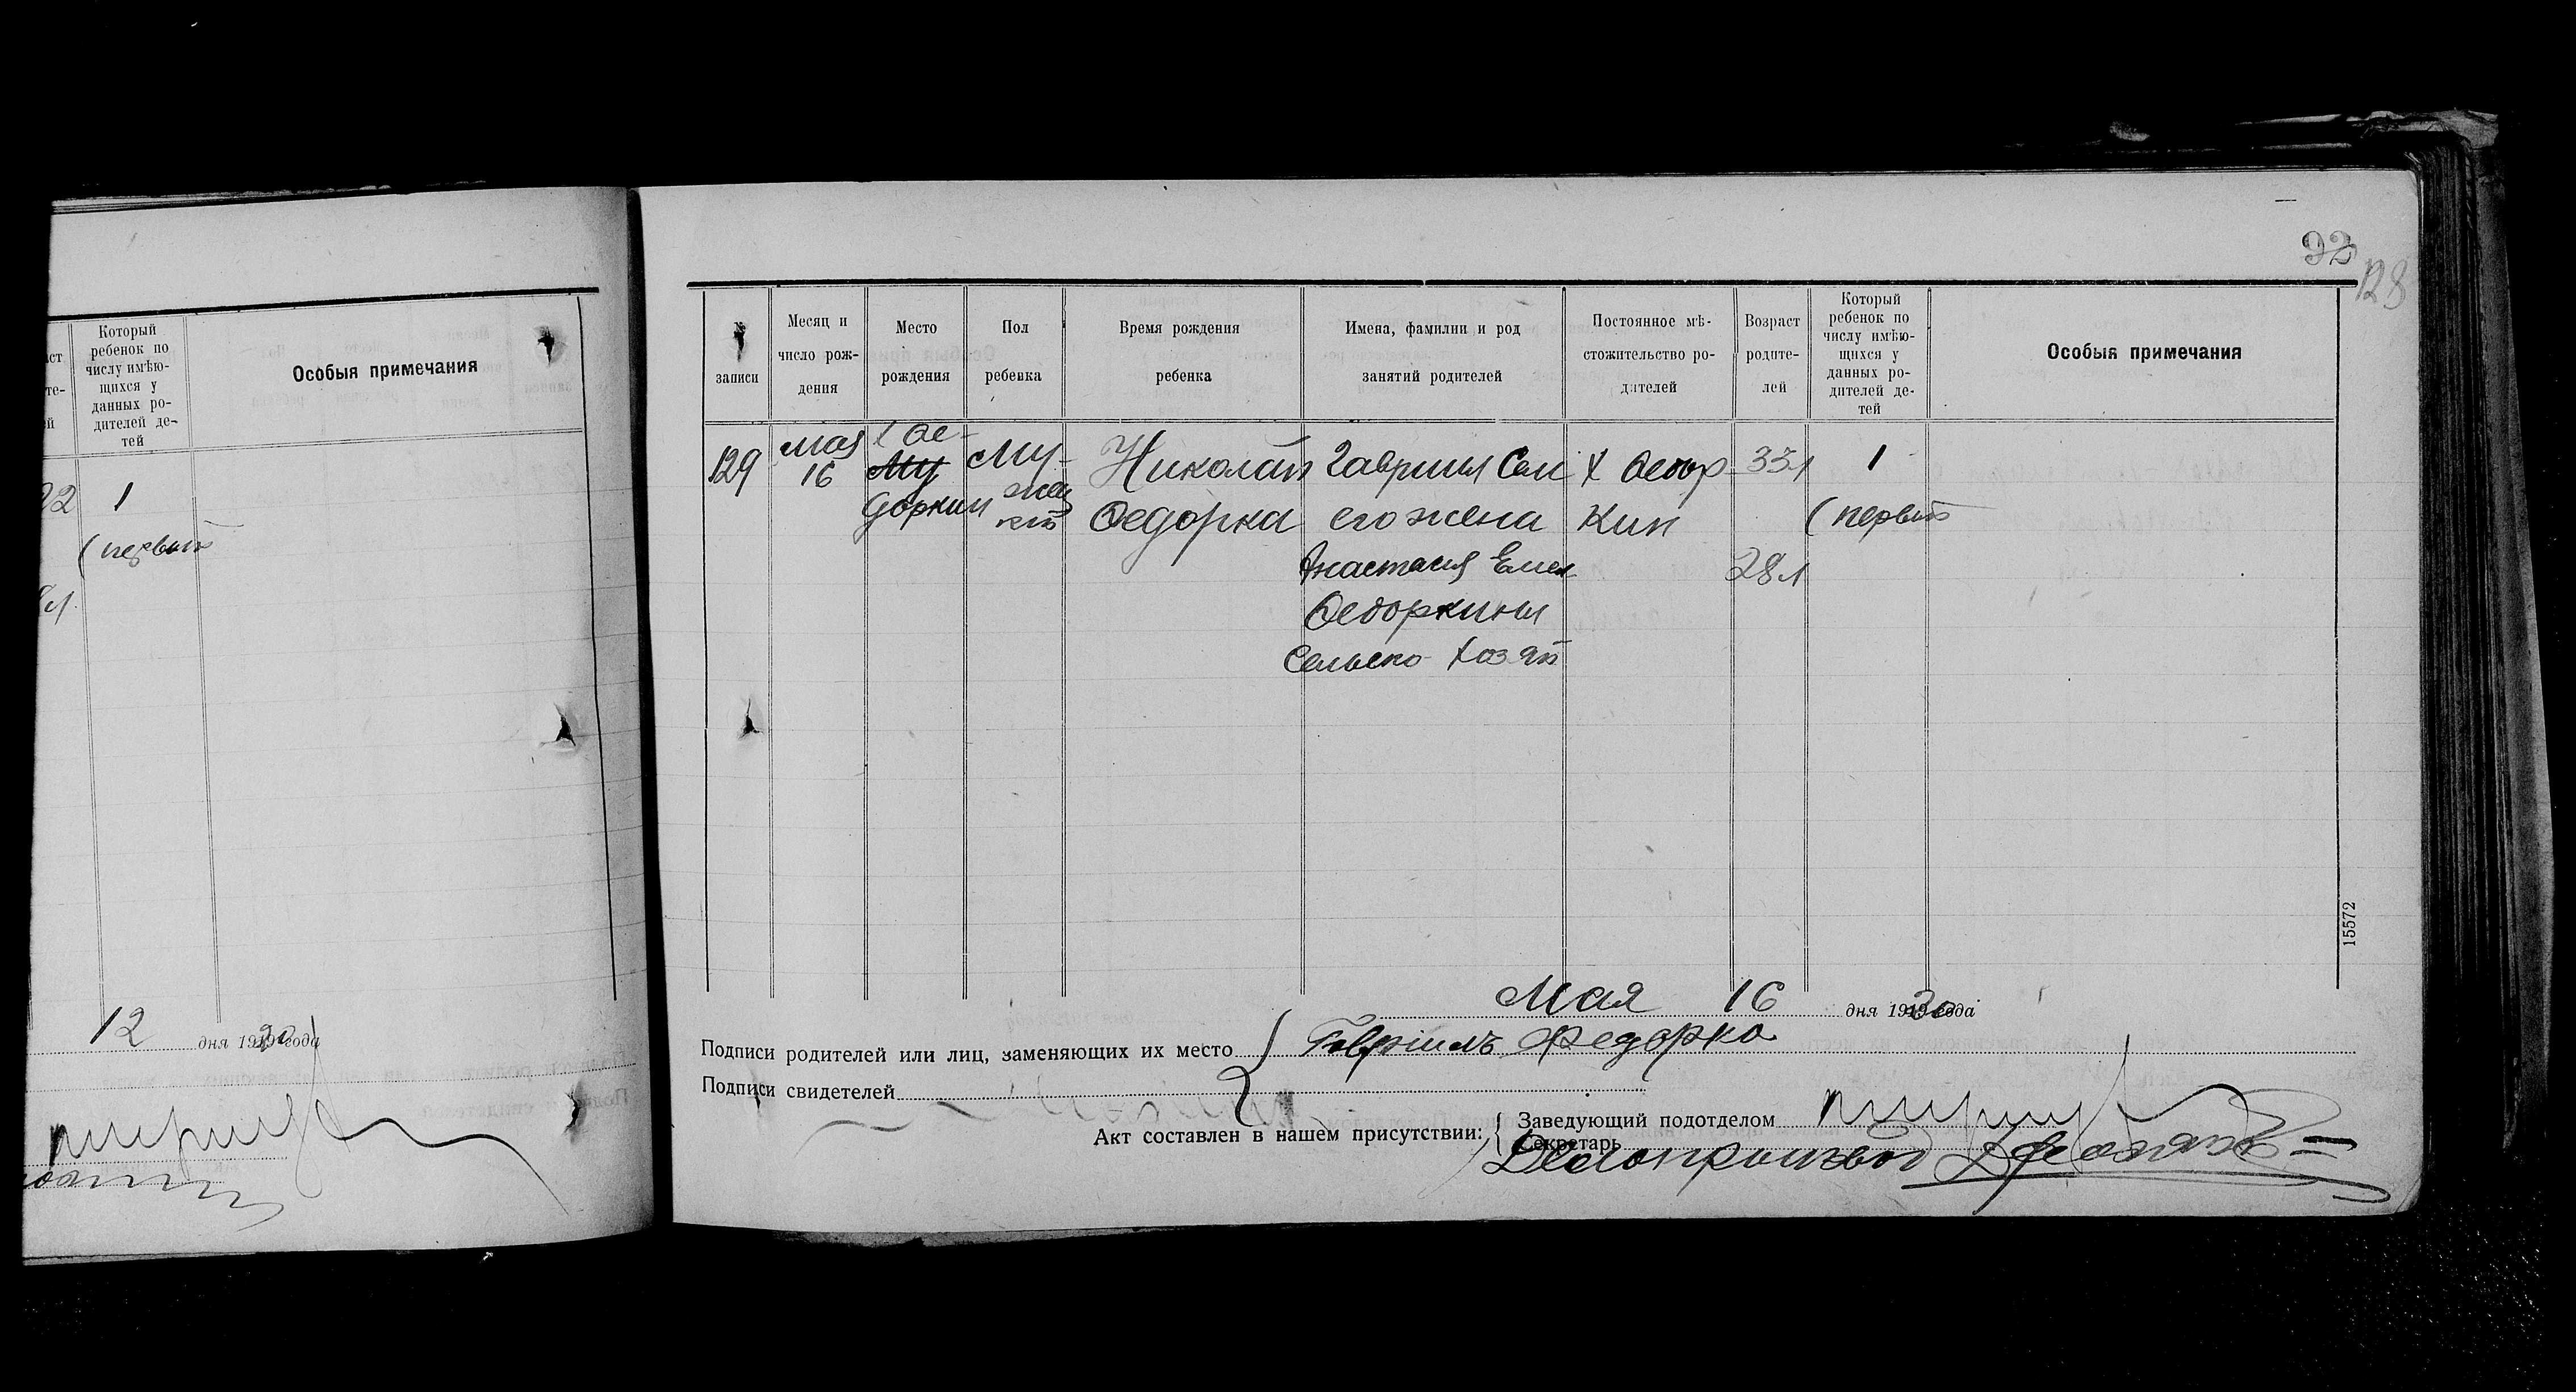 Который
ребенок по
числу имѣю-
щихся у
данных ро-
дителей де-
тей
Особыя примечания
1
(первый
12 дня 1920 года
92
128
записи
Месяц и
число рож-
дения
Место
рождения
Пол
ребенка
Время рождения
ребенка
Имена, фамилии и род
занятий родителей
Постоянное мѣ-
стожительство ро-
дителей
Возраст
родите-
лей
Который
ребенок по
числу имѣю-
щихся у
данных ро-
дителей де-
тей
Особыя примечания
129
мая
16
х Ѳе-
Му
доркин
Му-
жес
кий
Николай
Ѳедорка
Гавриил Сем
его жена
Анастасия Емел
Ѳедоркины
Сельско-хозяй
х Ѳедор-
кин
33 л
28 л
1
(первый
15572
Мая 16 дня 1920 года
Подписи родителей или лиц, заменяющих их место Гавріилъ Федорка
Подписи свидетелей
Акт составлен в нашем присутствии:
Заведующий подотделом
Секретарь
Делопроизвод